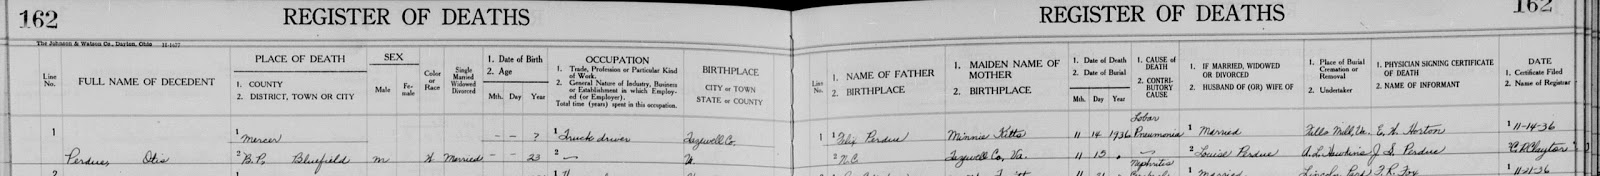 162 REGISTER OF DEATHS REGISTER OF DEATHS 162
The Johnson & Watson Co., Dayton, Ohio
Line No.
FULL NAME OF DECEDENT
PLACE OF DEATH
1. COUNTY
2. DISTRICT, TOWN OR CITY
SEX
Male
Fe-male
Color or Race
Single Married Widowed Divorced
1. Date of Birth
2. Age
Mth. Day Year
OCCUPATION
1. Trade, Profession or Particular Kind of Work.
2. General Nature of Industry, Business or Establishment in which Employed (or Employer).
Total time (years) spent in this occupation.
BIRTHPLACE
CITY or TOWN
STATE or COUNTY
Line No.
1. NAME OF FATHER
2. BIRTHPLACE
1. MAIDEN NAME OF MOTHER
2. BIRTHPLACE
1. Date of Death
2. Date of Burial
Mth. Day Year
1. CAUSE OF DEATH
2. CONTRIBUTORY CAUSE
1. IF MARRIED, WIDOWED OR DIVORCED
2. HUSBAND OF (OR) WIFE OF
1. Place of Burial Cremation or Removal
2. Undertaker
1. PHYSICIAN SIGNING CERTIFICATE OF DEATH
2. NAME OF INFORMANT
DATE
1. Certificate Filed
2. Name of Registrar
Lobar
1 1 Mercer - - ? 1 Truck driver Tazwell Co. 1 1 Felix Perdue Minnie Kitts 11 14 1936 Pneumonia 1 Married Falls Mill, Va. E. H. Horton 1 11-14-36
Perdue, Otis 2 B.P. Bluefield m W Married - - 23 2 - 2 N.C. Tazwell Co, Va. 11 15 - 2 Louise Perdue A. L. Hawkins J. S. Perdue 2 Clayton
Nephritis
2 1 11 1 Married Lincoln 11-21-36